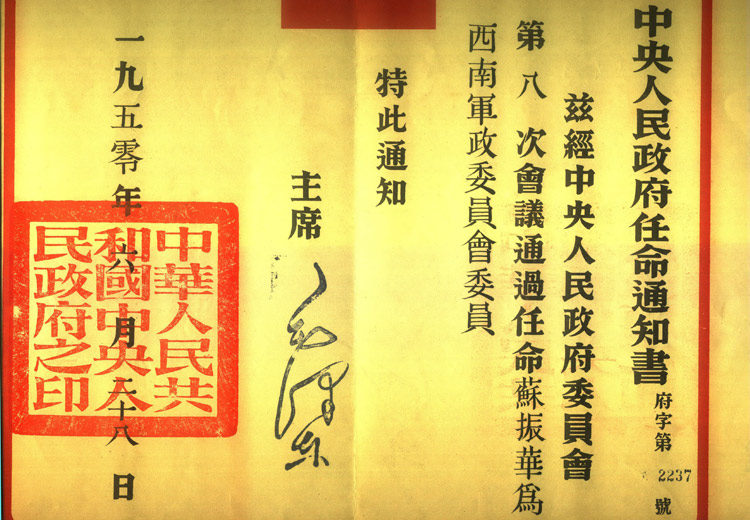 中央人民政府任命通知書 府字第2237號
茲經中央人民政府委員會
第八次會議通過任命蘇振華爲
西南軍政委員會委員
特此通知
主席 毛澤东
一九五零年六月二十八日
中華人民共
和國中央人
民政府之印